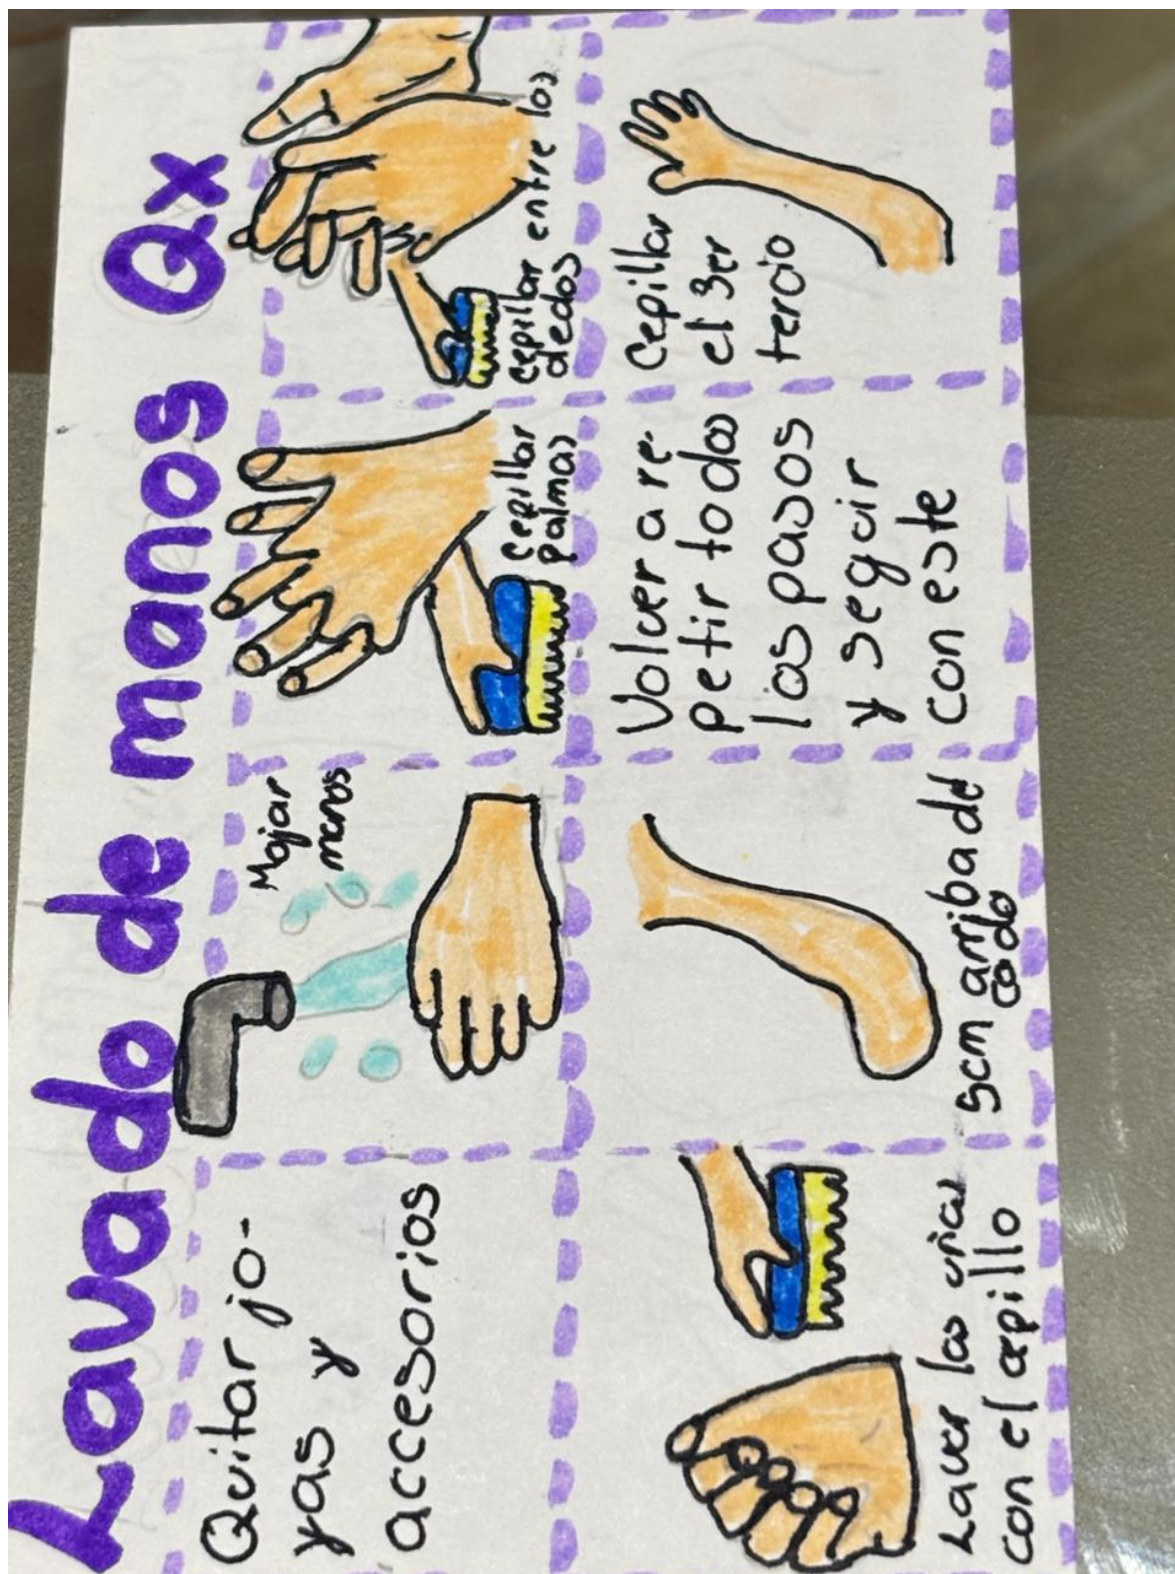 Lavado de manos Qx
Quitar jo-
yas y
accesorios
Mojar
manos
Cepillar
palmas
Cepillar entre los
dedos
Lavar las uñas
con el cepillo
5cm arriba del
codo
Volver a re-
petir todos
los pasos
y seguir
con este
Cepillar
el 3er
tercio